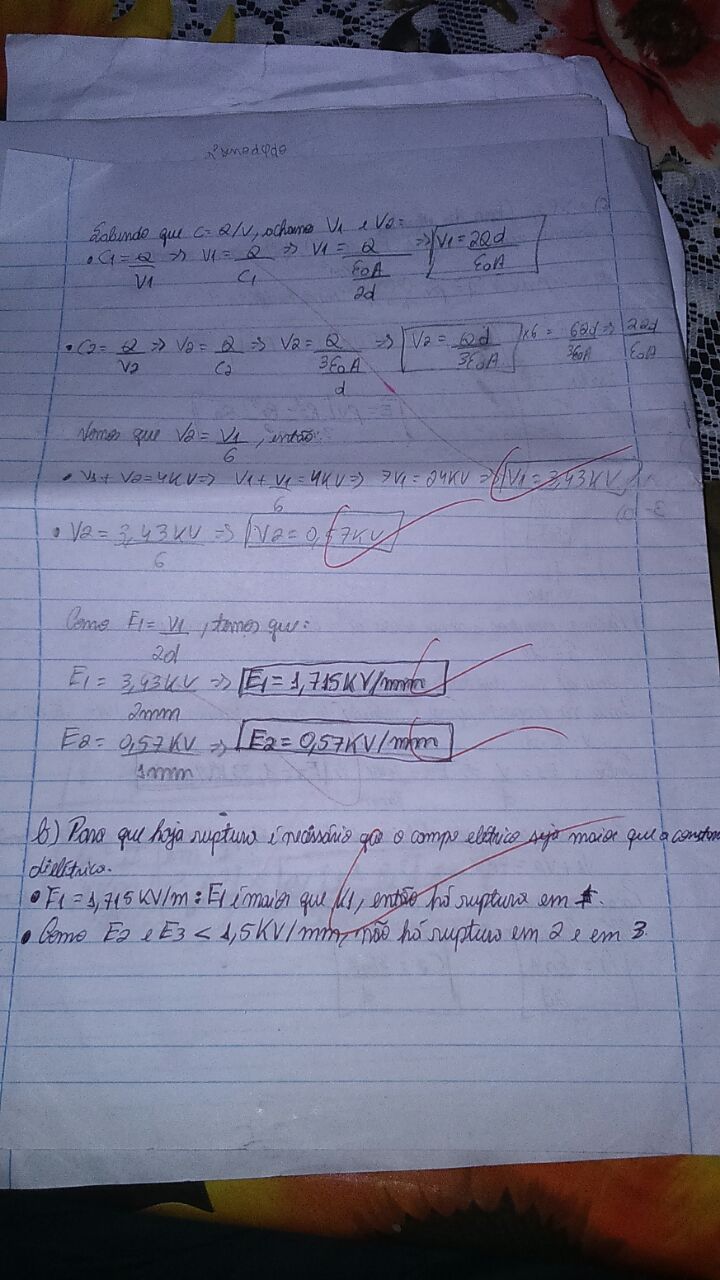 Sabendo que C = Q/V, achamos V1 e V2 =
• C1 = Q/V1 => V1 = Q/C1 => V1 = Q/(ε0A/2d) => V1 = 2Qd/ε0A
• C2 = Q/V2 => V2 = Q/C2 => V2 = Q/(3ε0A/d) => V2 = Qd/3ε0A x6 = 6Qd/3ε0A => 2Qd/ε0A
Vemos que V2 = V1/6, então:
• V1 + V2 = 4KV => V1 + V1/6 = 4KV => 7V1 = 24KV => V1 = 3,43KV
• V2 = 3,43KV/6 => V2 = 0,57KV
Como E1 = V1/2d, temos que:
E1 = 3,43KV/2mm => E1 = 1,715KV/mm
E2 = 0,57KV/1mm => E2 = 0,57KV/mm
b) Para que haja ruptura é necessário que o campo elétrico seja maior que a
dielétrica.
• E1 = 1,715KV/m : E1 é maior que K1, então há ruptura em 1.
• Como E2 e E3 < 1,5KV/mm, não há ruptura em 2 e em 3.